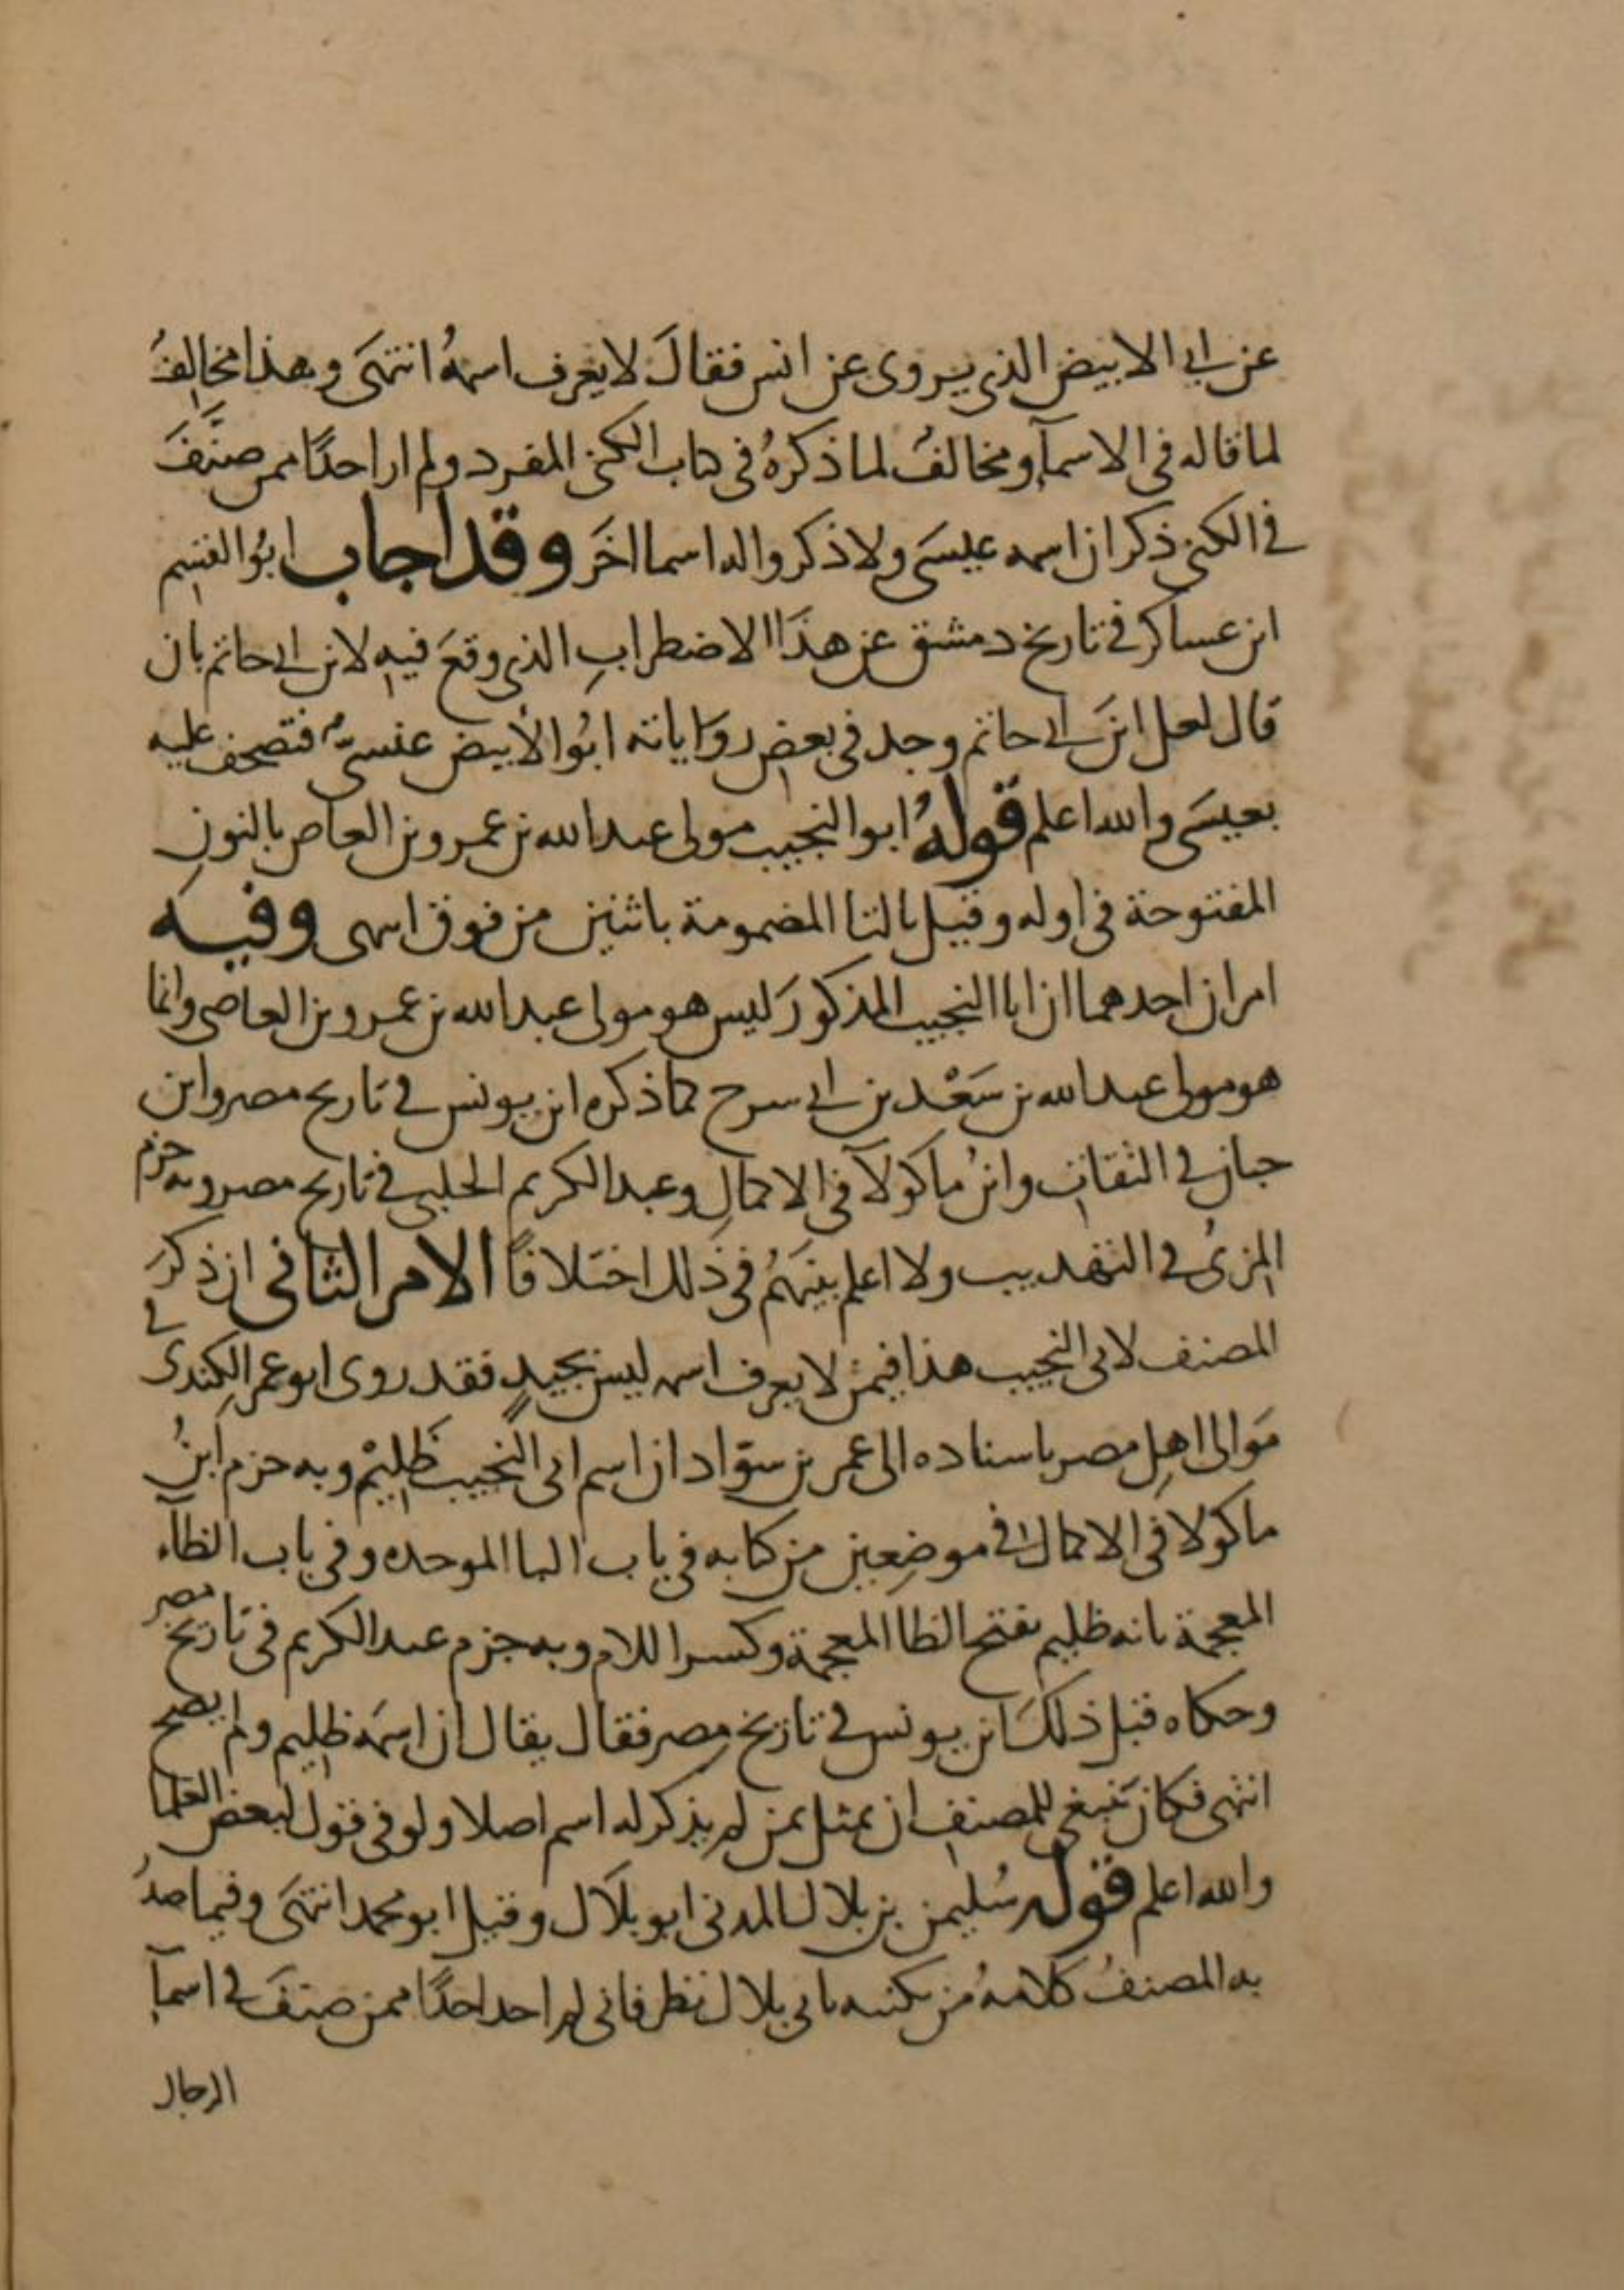 عن ابي الابيض الذي يروي عن انس فقالَ لا يعرف اسمهُ انتهَى وهذا مخالِفُ
لما قاله في الاسمآ ومخالفُ لما ذكرهُ في كتاب الكنى المفرد ولم ار احدًا ممن صنَّفَ
في الكنى ذكر ان اسمه عيسَى ولا ذكروا له اسما اخَر وقد اجاب ابُو القسم
ابن عساكر في تاريخ دمشق عن هذَا الاضطرابِ الذي وقعَ فيهِ لابن ابي حاتم بان
قال لعل ابنَ ابي حاتم وجد في بعض روَاياته ابُو الأبيض عنسىّ فتصحف عليه
بعيسَى والله اعلم قولهُ ابو النجيب مولى عبد الله بن عمرو بن العاص بالنونِ
المفتوحة في اوله وقيل بالتا المضمومة باثنين من فوق انتهى وفيه
امران احدهما ان ابا النجيب المذكورَ ليس هو مولى عبد الله بن عمرو بن العاصي وانما
هو مولى عبد الله بن سَعْد بن ابي سرح كما ذكره ابن يونس في تاريخ مصر وابن
حبان في الثقات وابنُ ماكولآ في الاكمالِ وعبد الكريم الحلبي في تاريخ مصر وبه جزم
المزيُ في التهذيب ولا اعلم بينَهُم في ذلك اختلافًا الامر الثاني ان ذكرَ
المصنف لابي النجيب هذا فيمن لا يعرف اسمه ليس بجيدٍ فقد روى ابو عمر الكِندي في
مَوالي اهلِ مصر باسناده الى عمرو بن سوّاد ان اسم ابي النجيب ظَلِيْم وبه جزم ابنُ
ماكولا في الاكمال في موضِعين من كتابه في باب البا الموحده وفي باب الظآء
المعجمة بانه ظليم بفتح الظا المعجمة وكسر اللام وبه جزم عبد الكريم في تاريخ مصر
وحكاه قبل ذلكَ ابن يونس في تاريخ مصر فقال يقال ان اسمَه ظليم ولم يصح
انتهى فكان ينبغي للمصنفِ ان يمثل بمن لم يذكر له اسم اصلا ولو في قول لبعض العلما
والله اعلم قوله سُليمن بن بلال المدني ابو بلَال وقيل ابو محمد انتهَى وفيما صدرُ
به المصنفُ كلامهُ من تكنيته بابي بلال نظر فاني لم اجد احدًا ممن صنفَ في اسمآ
الرجال